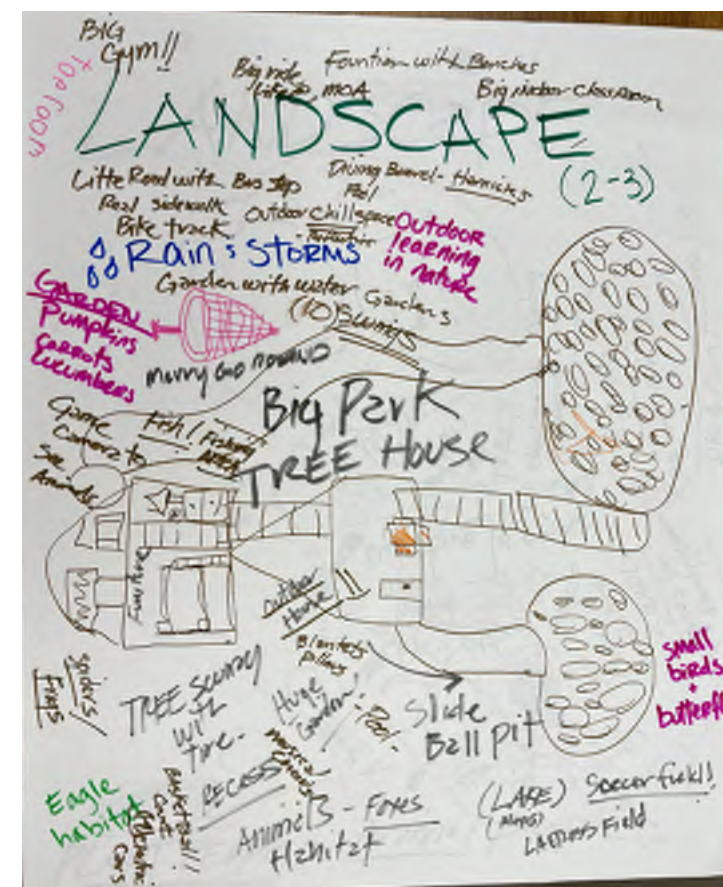 BIG
Gym!!
TOP ROOM
Big ride
Like MOA
Fountian with Benches
Big indoor Classroom
LANDSCAPE
(2-3)
Little Road with Bus stop
Real sidewalk
Bike track
Diving Board -
Pool
Outdoor chill space
Outdoor
learning
in nature
Rain & STORMS
Garden with water
Gardens
GARDEN
Pumpkins
Carrots
Cucumbers
(10) Swings
merry Go Round
Big Park
TREE House
Game
Camera to
See
Animals
Fish / Fishing
outdoor
House
Blankets
pillows
spiders/
Frogs
TREE Swing
with
tire -
RECESS
Huge
Garden!
- Pool -
Slide
Ball pit
small
birds
+
butterfl
Eagle
habitat
Basketball!
Court
Cars
Animals - Foxes
Habitat
(LAKE)
Soccer field!
Field